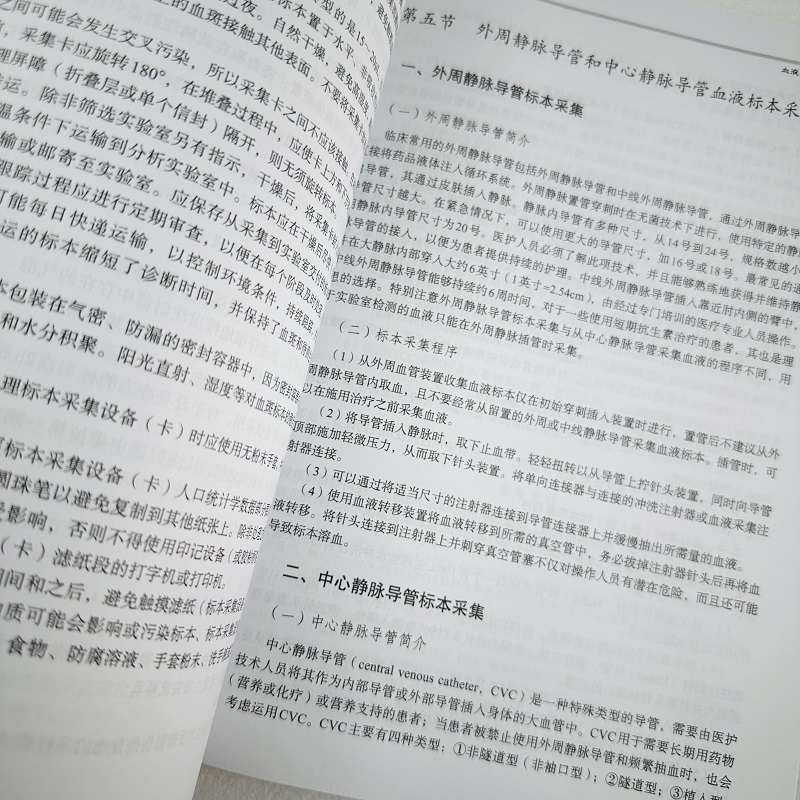 型的是15~20μ
标本置于水平、非吸
过夜。自然干燥，避免高
上的血斑接触其他表面。不要将采集
之间可能会发生交叉污染，所以采集卡之间不应该接触
，采集卡应旋转180°，在堆叠过程中，应使卡上
理屏障（折叠层或单个信封）隔开，则无须旋转标本。
运。除非筛选实验室另有指示，干燥后，将采集
温条件下运输到分析实验室中。标本应在干燥后
输或邮寄至实验室。应保存从采集到实验室交
跟踪过程应进行定期审查，以便在每个阶段及时
可能每日快递运输，以控制环境条件，持续跟踪
运的标本缩短了诊断时间，并保持了血斑和
本包装在气密、防漏的密封容器中，因为密封
和水分积聚。阳光直射、湿度等对血斑标本
理标本采集设备（卡）时应使用无粉末手套
标本采集设备（卡）人口统计学数据部分
圆珠笔以避免复制到其他纸张上。除非
影响，否则不得使用印记设备（或
（卡）滤纸段的打字机或打印机。
期间和之后，避免触摸滤纸（标本采集
物质可能会影响或污染标本、标本采集
食物、防腐溶液、手套粉末、洗手
血液
第五节 外周静脉导管和中心静脉导管血液标本采
一、外周静脉导管标本采集
（一）外周静脉导管简介
临床常用的外周静脉导管包括外周静脉导管和中线外周静脉导管，通过外周静脉导
接将药品液体注人循环系统。外周静脉置管穿刺时在无菌技术下进行，使用特定的静
导管，其通过皮肤插人静脉。静脉内导管有多种尺寸，从14号到24号，规格数越小
管尺寸越大。在紧急情况下，可以使用更大的导管尺寸，如16号或18号。最常见的
静脉内导管尺寸为20号。医护人员必须了解此项技术，并且能够熟练地获得并维持静
导管的接人，以便为患者提供持续的护理。中线外周静脉导管插人靠近肘内侧的臂中，
在大静脉内部穿人大约6英寸（1英寸=2.54cm），由经过专门培训的医疗专业人员操作。
线外周静脉导管能够持续约6周时间，对于一些使用短期抗生素治疗的患者，其也是理
的选择。特别注意外周静脉导管标本采集与从中心静脉导管采集血液的程序不同，用
实验室检测的血液只能在外周静脉插管时采集。
（二）标本采集程序
（1）从外周血管装置收集血液标本仅在初始穿刺插人装置时进行，置管后不建议从外
周静脉导管内取血，且不要经常从留置的外周或中线静脉导管采集血液标本。插管时，可
以在施用治疗之前采集血液。
（2）将导管插人静脉时，取下止血带。轻轻扭转以从导管上拧针头装置，同时向导管
顶部施加轻微压力，从而取下针头装置。将单向连接器与连接的冲洗注射器或血液采集注
射器连接。
（3）可以通过将适当尺寸的注射器连接到导管连接器上并缓慢抽出所需量的血液。
（4）使用血液转移装置将血液转移到所需的真空管中，务必拔掉注射器针头后再将血
液转移。将针头连接到注射器上并刺穿真空管塞不仅对操作人员有潜在危险，而且还可能
导致标本溶血。
二、中心静脉导管标本采集
（一）中心静脉导管简介
中心静脉导管（central venous catheter，CVC）是一种特殊类型的导管，需要由医护
技术人员将其作为内部导管或外部导管插人身体的大血管中。CVC用于需要长期用药物
（营养或化疗）或营养支持的患者；当患者被禁止使用外周静脉导管和频繁抽血时，也会
考虑运用CVC。CVC主要有四种类型：①非隧道型（非袖口型）；②隧道型；③植人型